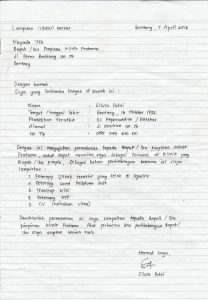 Lampiran : (satu) berkas Bontang, 7 April 2012
Kepada Yth
Bapak / Ibu Pimpinan Klinik Pratama
Jl. Bontang No. 04
Bontang
Dengan hormat
Saya yang bertanda tangan di bawah ini :
Nama : Silvia Putri
Tempat / tanggal lahir : Bontang, 14 Oktober 1992
Pendidikan terakhir : D3 Keperawatan /
Alamat : Jl No. 75
No Hp :
Dengan ini mengajukan permohonan kepada Bapak / Ibu pimpinan klinik
Pratama, untuk dapat menerima saya sebagai Perawat di klinik yang
Bapak / Ibu pimpin. Sebagai bahan pertimbangan bersama ini saya
lampirkan :
1. Fotocopy ijazah terakhir yang telah di legalisir
2. Fotocopy
3. Transkrip nilai
4. Fotocopy KTP
5. CV (curriculum vitae)
Demikianlah permohonan ini saya sampaikan kepada Bapak / Ibu
pimpinan Klinik Pratama. Atas perhatian dan pertimbangan Bapak /
Ibu saya ucapkan terima kasih.
Hormat saya,
Silvia Putri